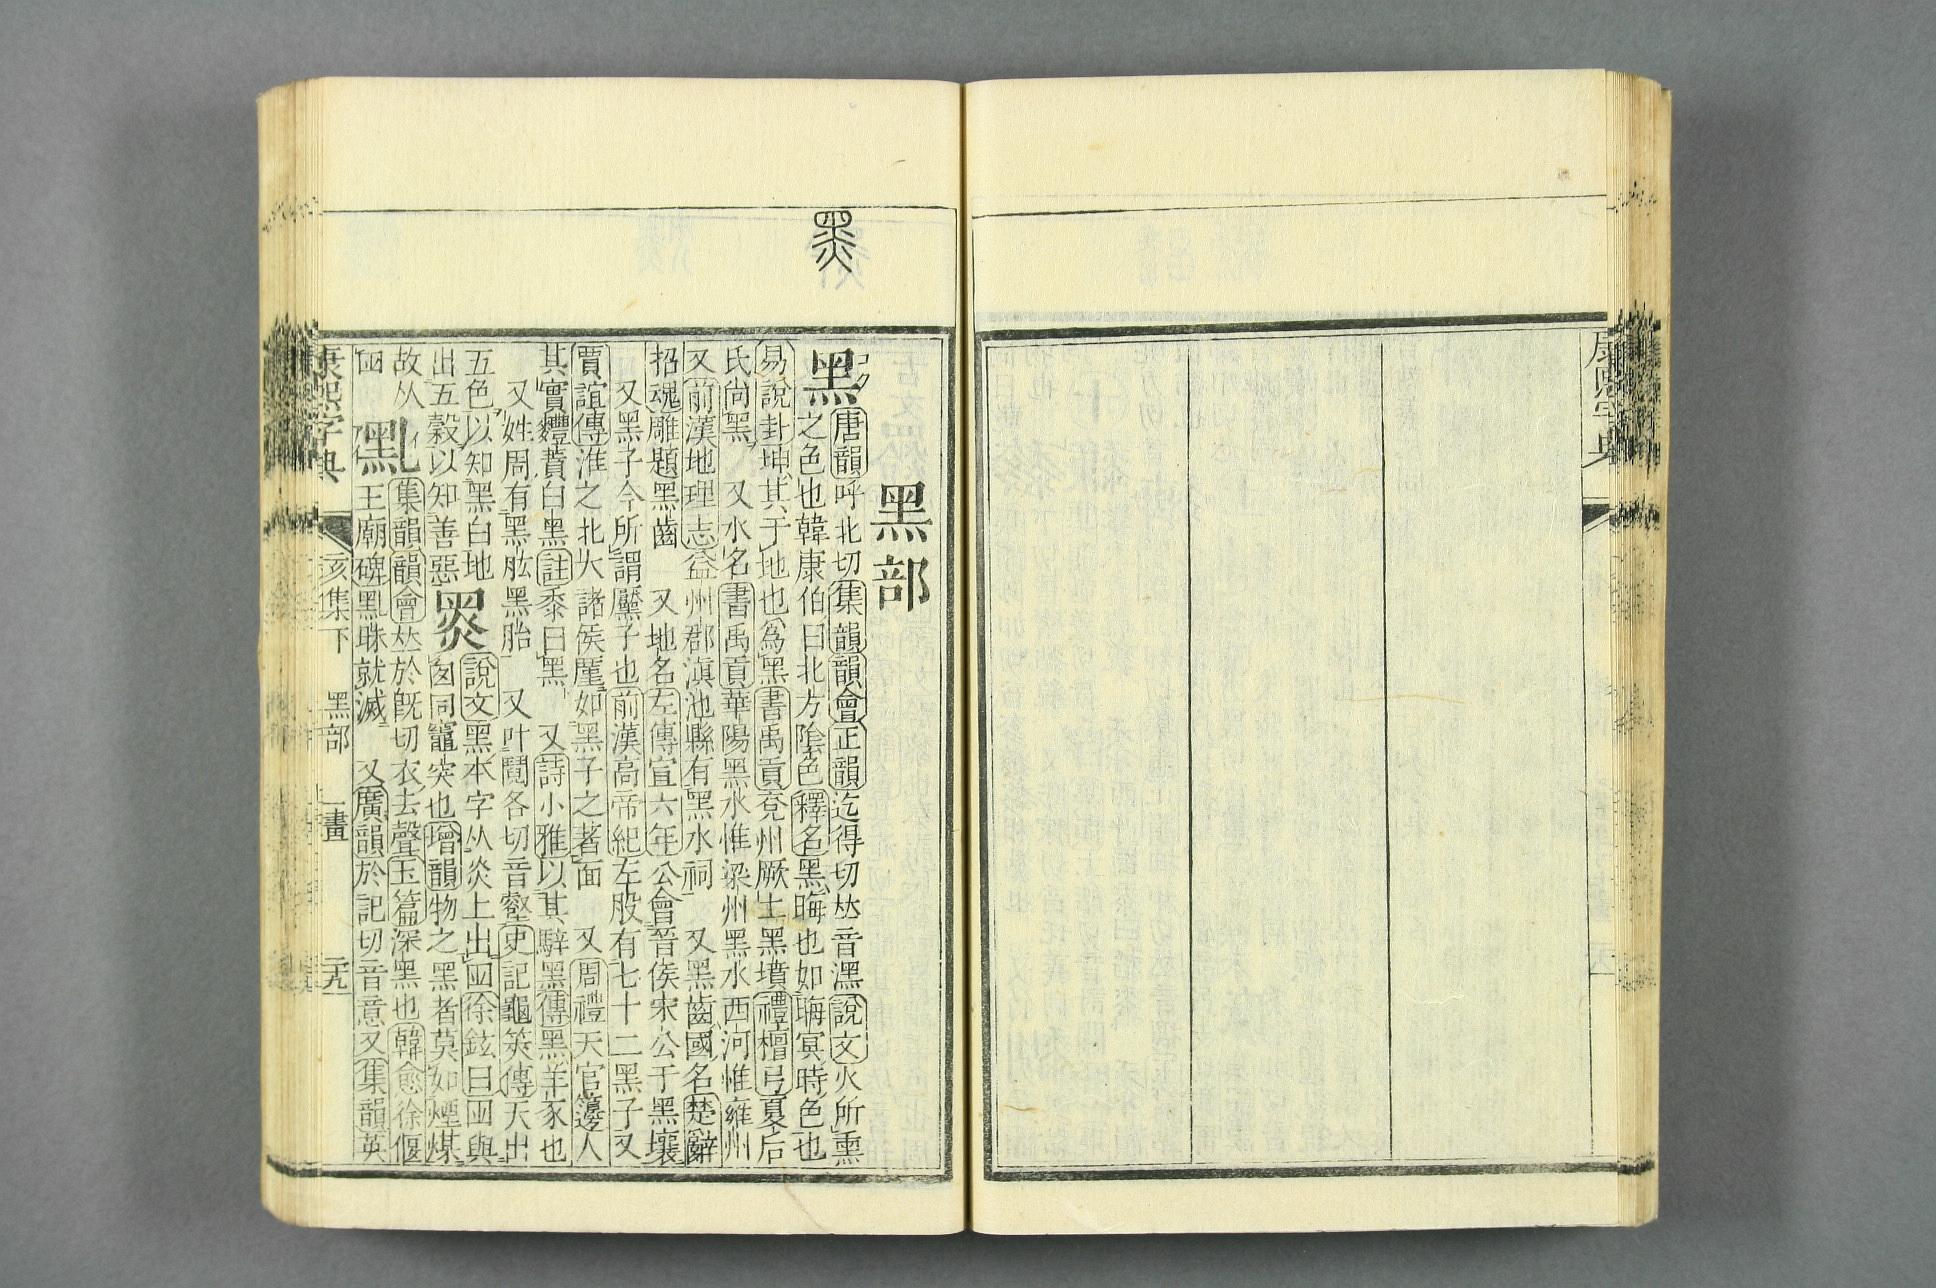 康熙字典
黑
黑部
黑コク唐韻呼北切集韻韻會正韻迄得切𠀤音潶說文火所熏
之色也韓康伯曰北方陰色釋名黑晦也如晦冥時色也
易說卦坤其于地也為黑書禹貢兗州厥土黑墳禮檀弓夏后
氏尚黑 又水名書禹貢華陽黑水惟梁州黑水西河惟雍州
又前漢地理志益州郡滇池縣有黑水祠 又黑齒國名楚辭
招魂雕題黑齒 又地名左傳宣六年公會晉侯宋公于黑壤
又黑子今所謂黶子也前漢高帝紀左股有七十二黑子又
賈誼傳淮之北大諸侯厪如黑子之著面 又周禮天官籩人
其實麷蕡白黑註黍曰黑 又詩小雅以其騂黑傳黑羊豕也
又姓周有黑肱黑胎 又叶各切音壑史記龜筴傳天出
五色以知黑白地
出五穀以知善惡
𪐗說文黑本字从炎上出囪徐鉉曰囪與
囱同竈突也增韻物之黑者莫如煙煤
故从
囪
𪐘イ集韻韻會𠀤於旣切衣去聲玉篇深黑也韓愈徐偃
王廟碑黑眿就滅 又廣韻於記切音意又集韻英
康熙字典 亥集下 黑部 一畫 二十九